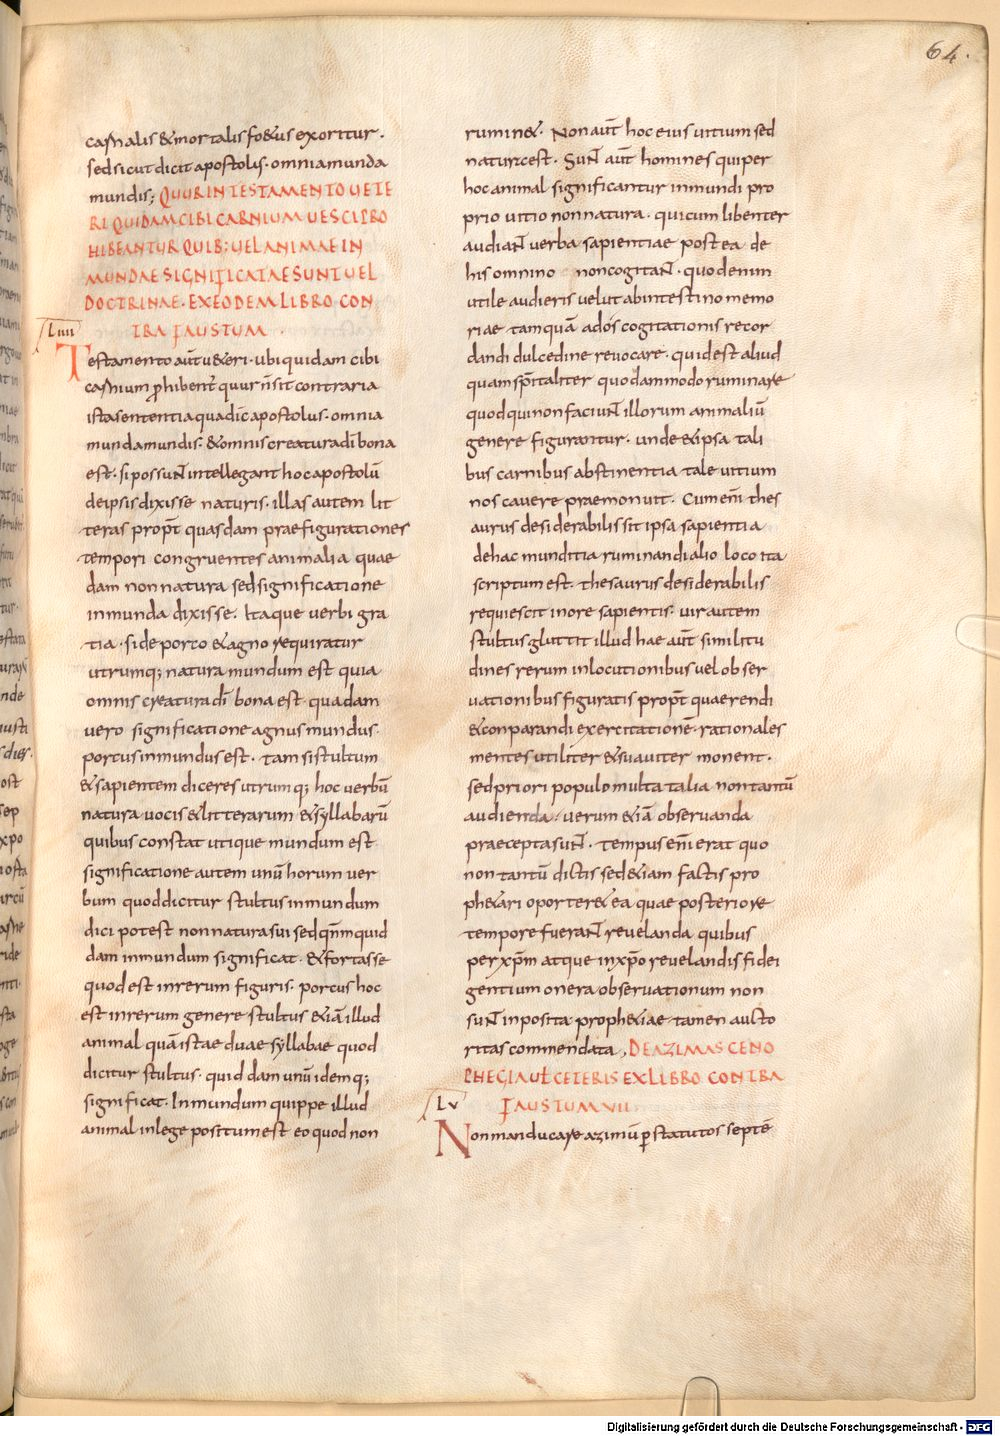 64.
carnalis & mortalis fo&us exoritur.
sed sicut dicit apostolis. omnia munda
mundis; QUUR IN TESTAMENTO UETE
RI QUIDAM CIBI CARNIUM UESCI PRO
HIBEANTUR QUIB; UEL ANIMAE IN
MUNDAE SIGNIFICATAE SUNT UEL
DOCTRINAE. EX EODEM LIBRO CON
TRA FAUSTUM.
LIIII
Testamento aut̄ u&eri. ubi quidam cibi
carnium ꝓhibent̄ quur n̄ sit contraria
ista sententia qua dic̄ apostolus. omnia
munda mundis. & omnis creatura dī bona
est. si possunt intellegant hoc apostolū
de ipsis dixisse naturis. illas autem lit
teras propt̄ quasdam praefigurationes
tempori congruentes animalia quae
dam non natura sed significatione
inmunda dixisse. Itaque uerbi gra
tia. si de porco & agno requiratur
utrumq; natura mundum est quia
omnis creatura dī bona est. quadam
uero significatione agnus mundus.
porcus inmundus est. tamsi stultum
& sapientem diceres utrumq; hoc uerbū
natura uocis & litterarum & syllabarū
quibus constat utique mundum est
significatione autem unū horum uer
bum quod dicitur stultus inmundum
dici potest non natura sui sed qn̄m quid
dam inmundum significat. & fortasse
quod est in rerum figuris. porcus hoc
est in rerum genere stultus &iā illud
animal quā istae duae syllabae quod
dicitur stultus. quiddam unū idemq;
significat. Inmundum quippe illud
animal in lege positum est eo quod non
rumin&. Non aut̄ hoc eius uitium sed
natura est. Sunt aut̄ homines qui per
hoc animal significantur inmundi pro
prio uitio non natura. qui cum libenter
audiant uerba sapientiae postea de
his omnino non cogitant. quod enim
utile audieris uelut ab intestino memo
riae tamquā ad os cogitationis recor
dandi dulcedine reuocare. quid est aliud
quam sp̄italiter quodammodo ruminare
quod qui non faciunt illorum animaliū
genere figurantur. unde & ipsa tali
bus carnibus abstinentia tale uitium
nos cauere praemonuit. Cum enī thes
aurus desiderabilis sit ipsa sapientia
de hac munditia ruminandi alio loco ita
scriptum est. thesaurus desiderabilis
requiescit in ore sapientis. uir autem
stultus gluttit illud hae aut̄ similitu
dines rerum in locutionibus uel obser
uationibus figuratis propt̄ quaerendi
& conparandi exercitationē rationales
mentes utiliter & suauiter monent.
sed priori populo multa talia non tantū
audienda. uerum &iā obseruanda
praecepta sunt. Tempus enī erat quo
non tantū dictis sed &iam factis pro
ph&ari oporter& ea quae posteriore
tempore fuerant reuelanda quibus
per xp̄m atque in xp̄o reuelandis fidei
gentium onera obseruationum non
sunt inposita proph&iae tamen aucto
ritas commendata, DE AZIMA SCENO
PHEGIA UT̄ CETERIS EX LIBRO CONTRA
FAUSTUM VII
LV
Non manducare azimū ꝑ statutos septē
Digitalisierung gefördert durch die Deutsche Forschungsgemeinschaft - DFG